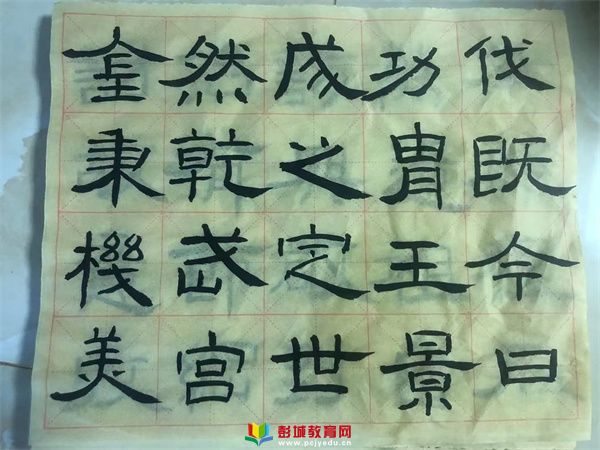 全然成功伐
秉乾之胄既
機武定王今
美宫世景日
彭城教育网
www.pcjyedu.cn